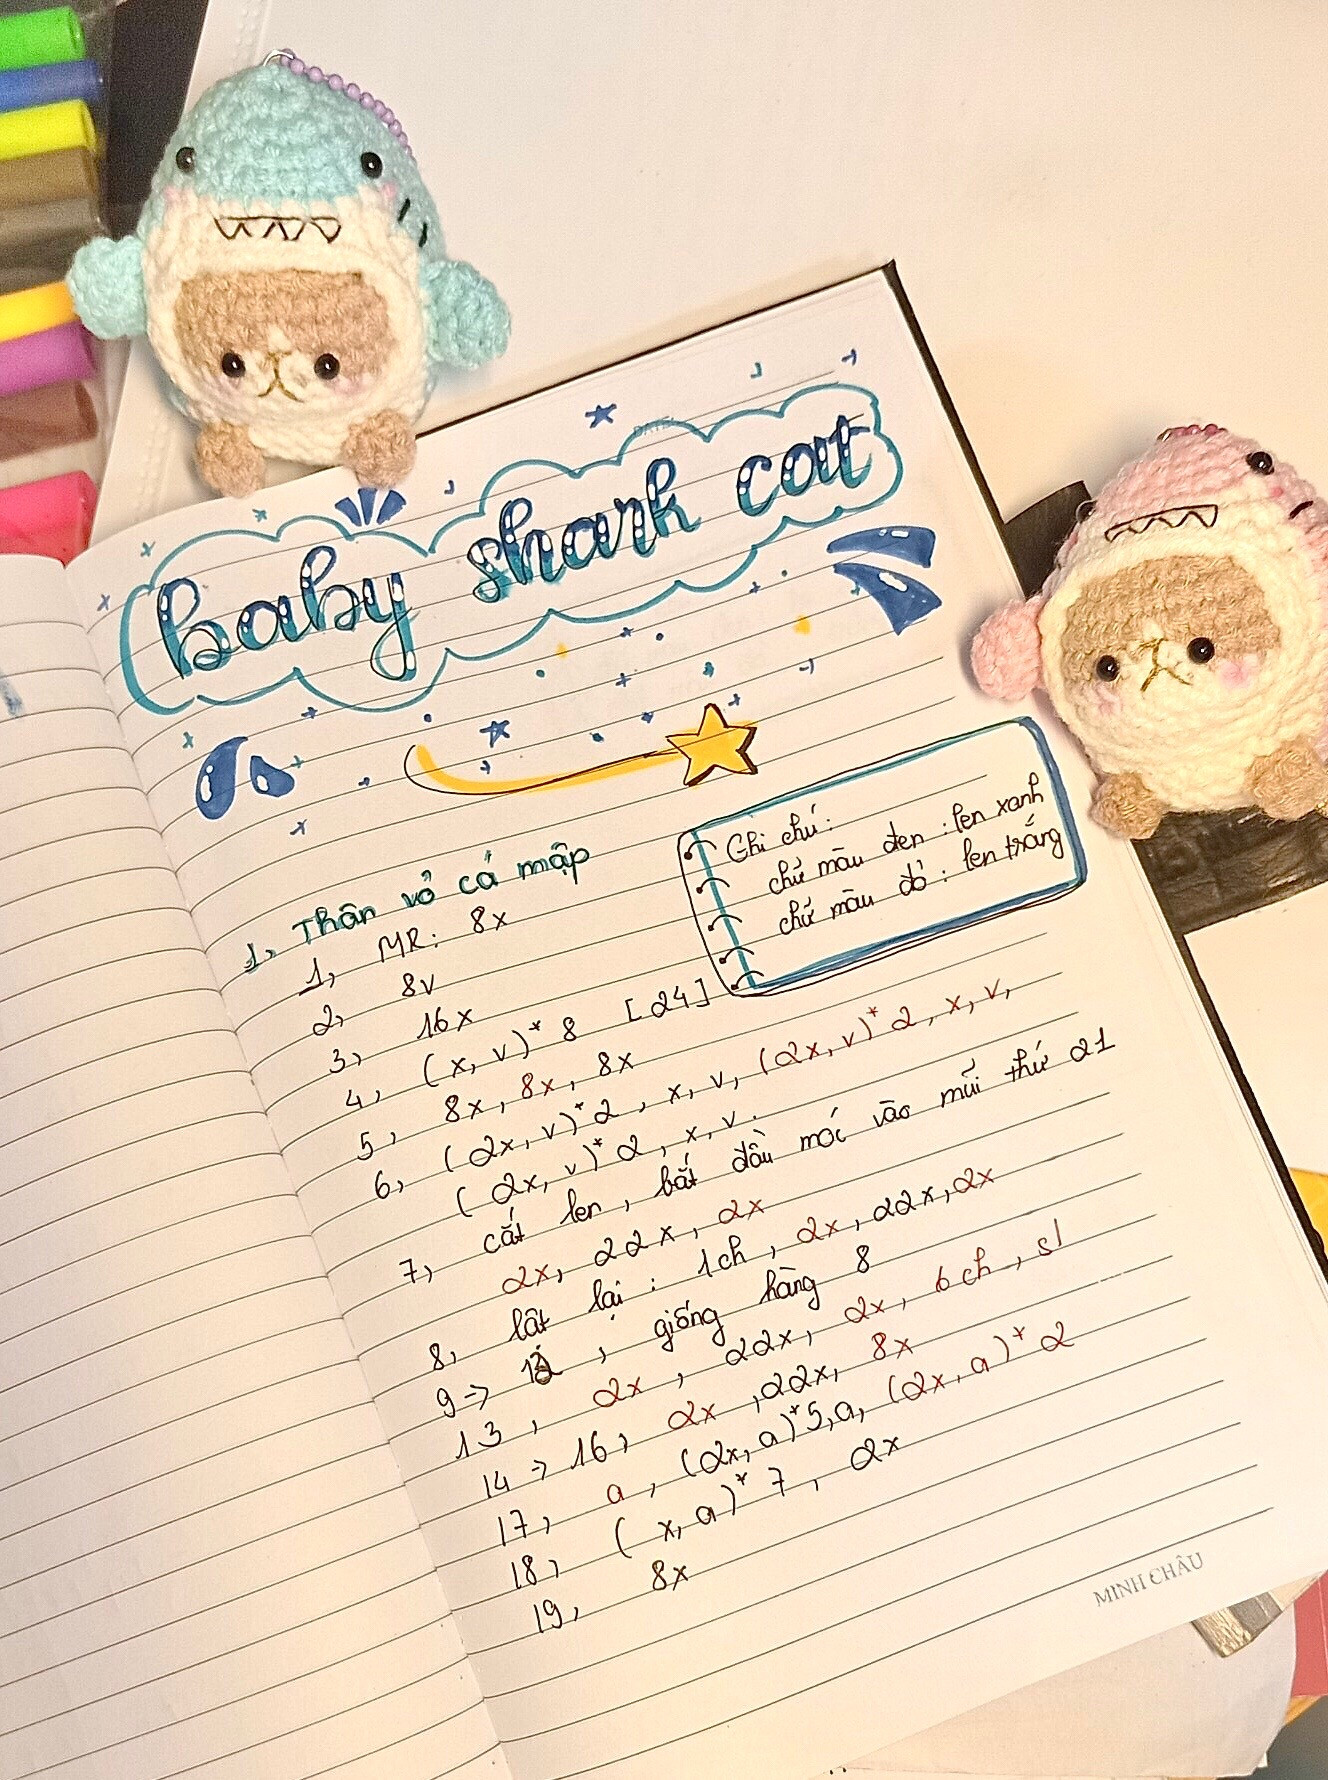 DATE:
baby shark cat
Ghi chú:
chữ màu đen : len xanh
chữ màu đỏ : len trắng
1, Thân vỏ cá mập
1, MR: 8x
2, 8v
3, 16x
4, (x, v)* 8 [24]
5, 8x, 8x, 8x
6, (2x, v)* 2, x, v, (2x, v)* 2, x, v,
(2x, v)* 2, x, v.
7, cắt len, bắt đầu móc vào mũi thứ 21
2x, 22x, 2x
8, lật lại : 1ch, 2x, 22x, 2x
9 -> 12, giống hàng 8
13, 2x, 22x, 2x, 6ch, sl
14 -> 16, 2x, 22x, 8x
17, a, (2x, a)* 5, a, (2x, a)* 2
18, (x, a)* 7, 2x
19, 8x
MINH CHÂU